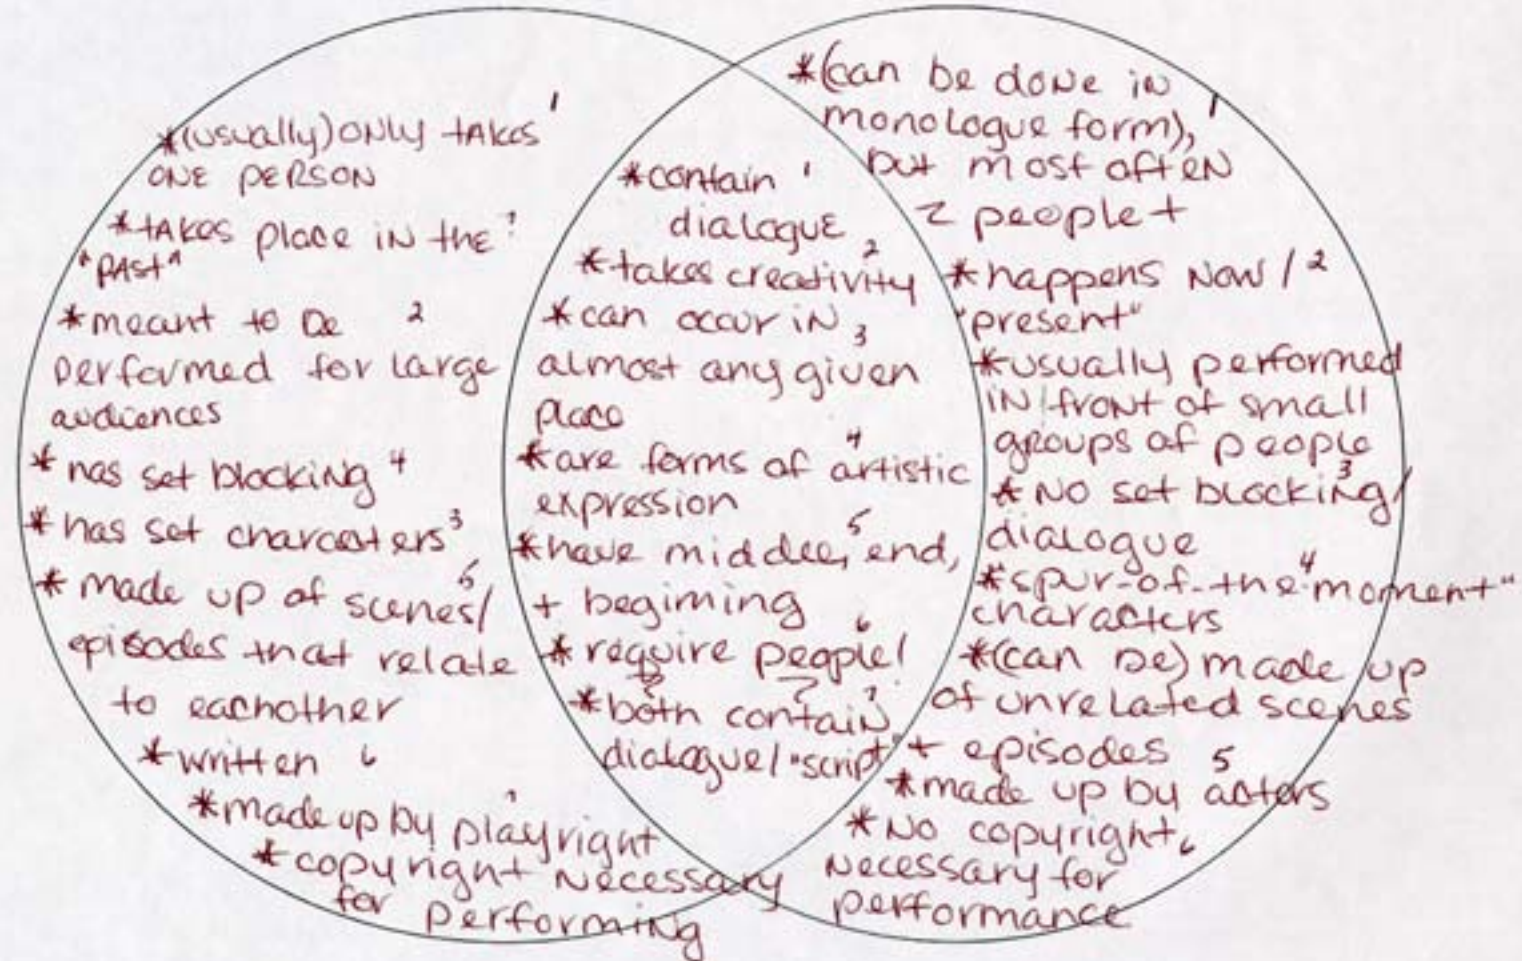 *(usually) ONLY tAKES 1
ONE PERSON
*tAKES place IN the ?
"PAST"
*meant to be 2
performed for large
audiences
* has set blocking 4
* has set charcaters 3
* made up of scenes/ 5
episodes that relate
to eachother
*written 6
*made up by playright ?
*copyright necessary
for performing
*contain 1
dialogue
*takes creativity 2
*can occur in 3
almost any given
place
*are forms of artistic 4
expression
*have middle, end, 5
+ begining
*require people! 6
? ?
*both contain ?
dialogue/"script"
*(can be done in
monologue form), 1
but most often
2 people +
*happens NOW/ 2
"present"
*usually performed
IN front of small
groups of people
*NO set blocking/ 3
dialogue
*"spur-of-the-moment" 4
characters
*(can be) made up
of unrelated scenes
+ episodes 5
*made up by actors
*NO copyright 6
necessary for
performance